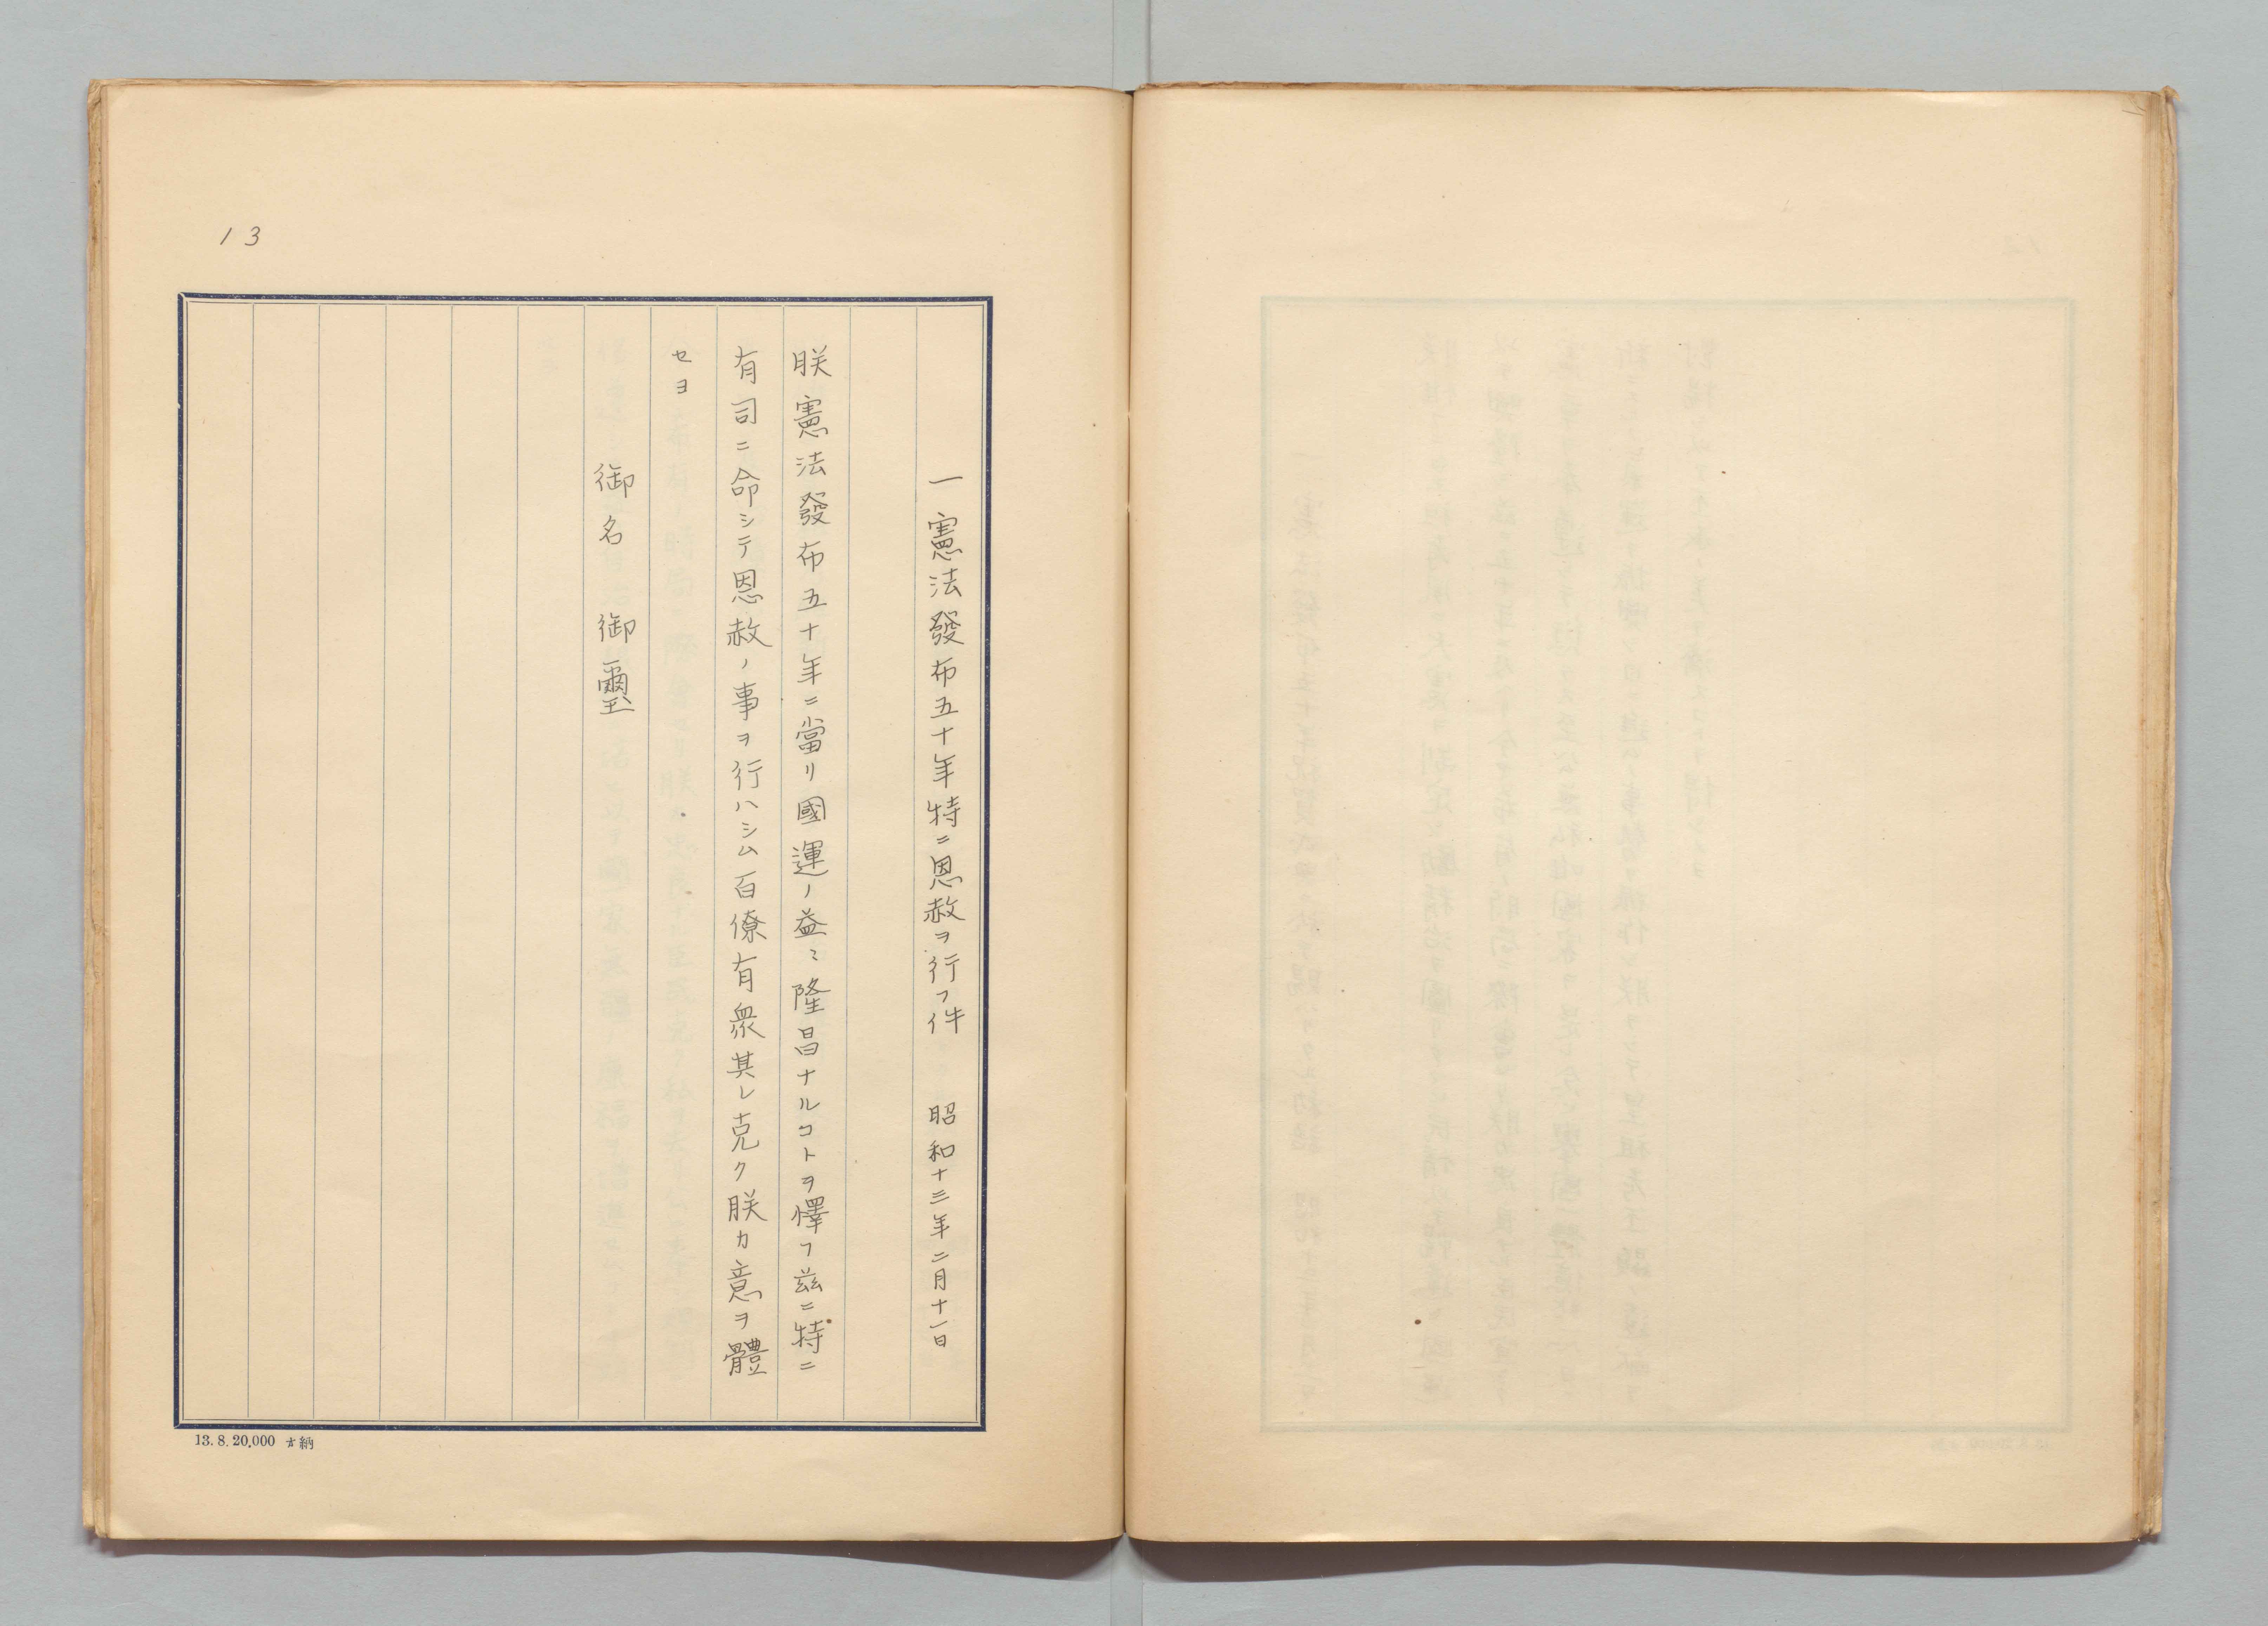 13
一憲法發布五十年特ニ恩赦ヲ行フ件　昭和十三年二月十一日
朕憲法發布五十年ニ當リ國運ノ益〻隆昌ナルコトヲ懌フ茲ニ特ニ
有司ニ命シテ恩赦ノ事ヲ行ハシム百僚有衆其レ克ク朕カ意ヲ體
セヨ
御名　御璽
13.8.20,000 納